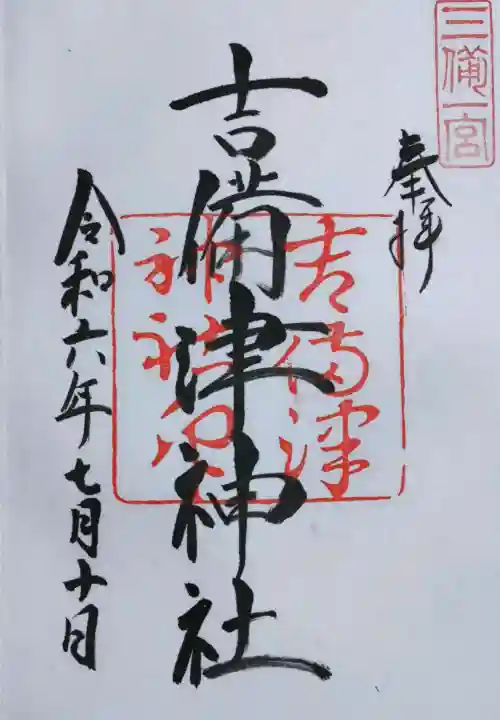 三備一宮
奉拝
吉備津神社
吉備津
神社
令和六年七月十日